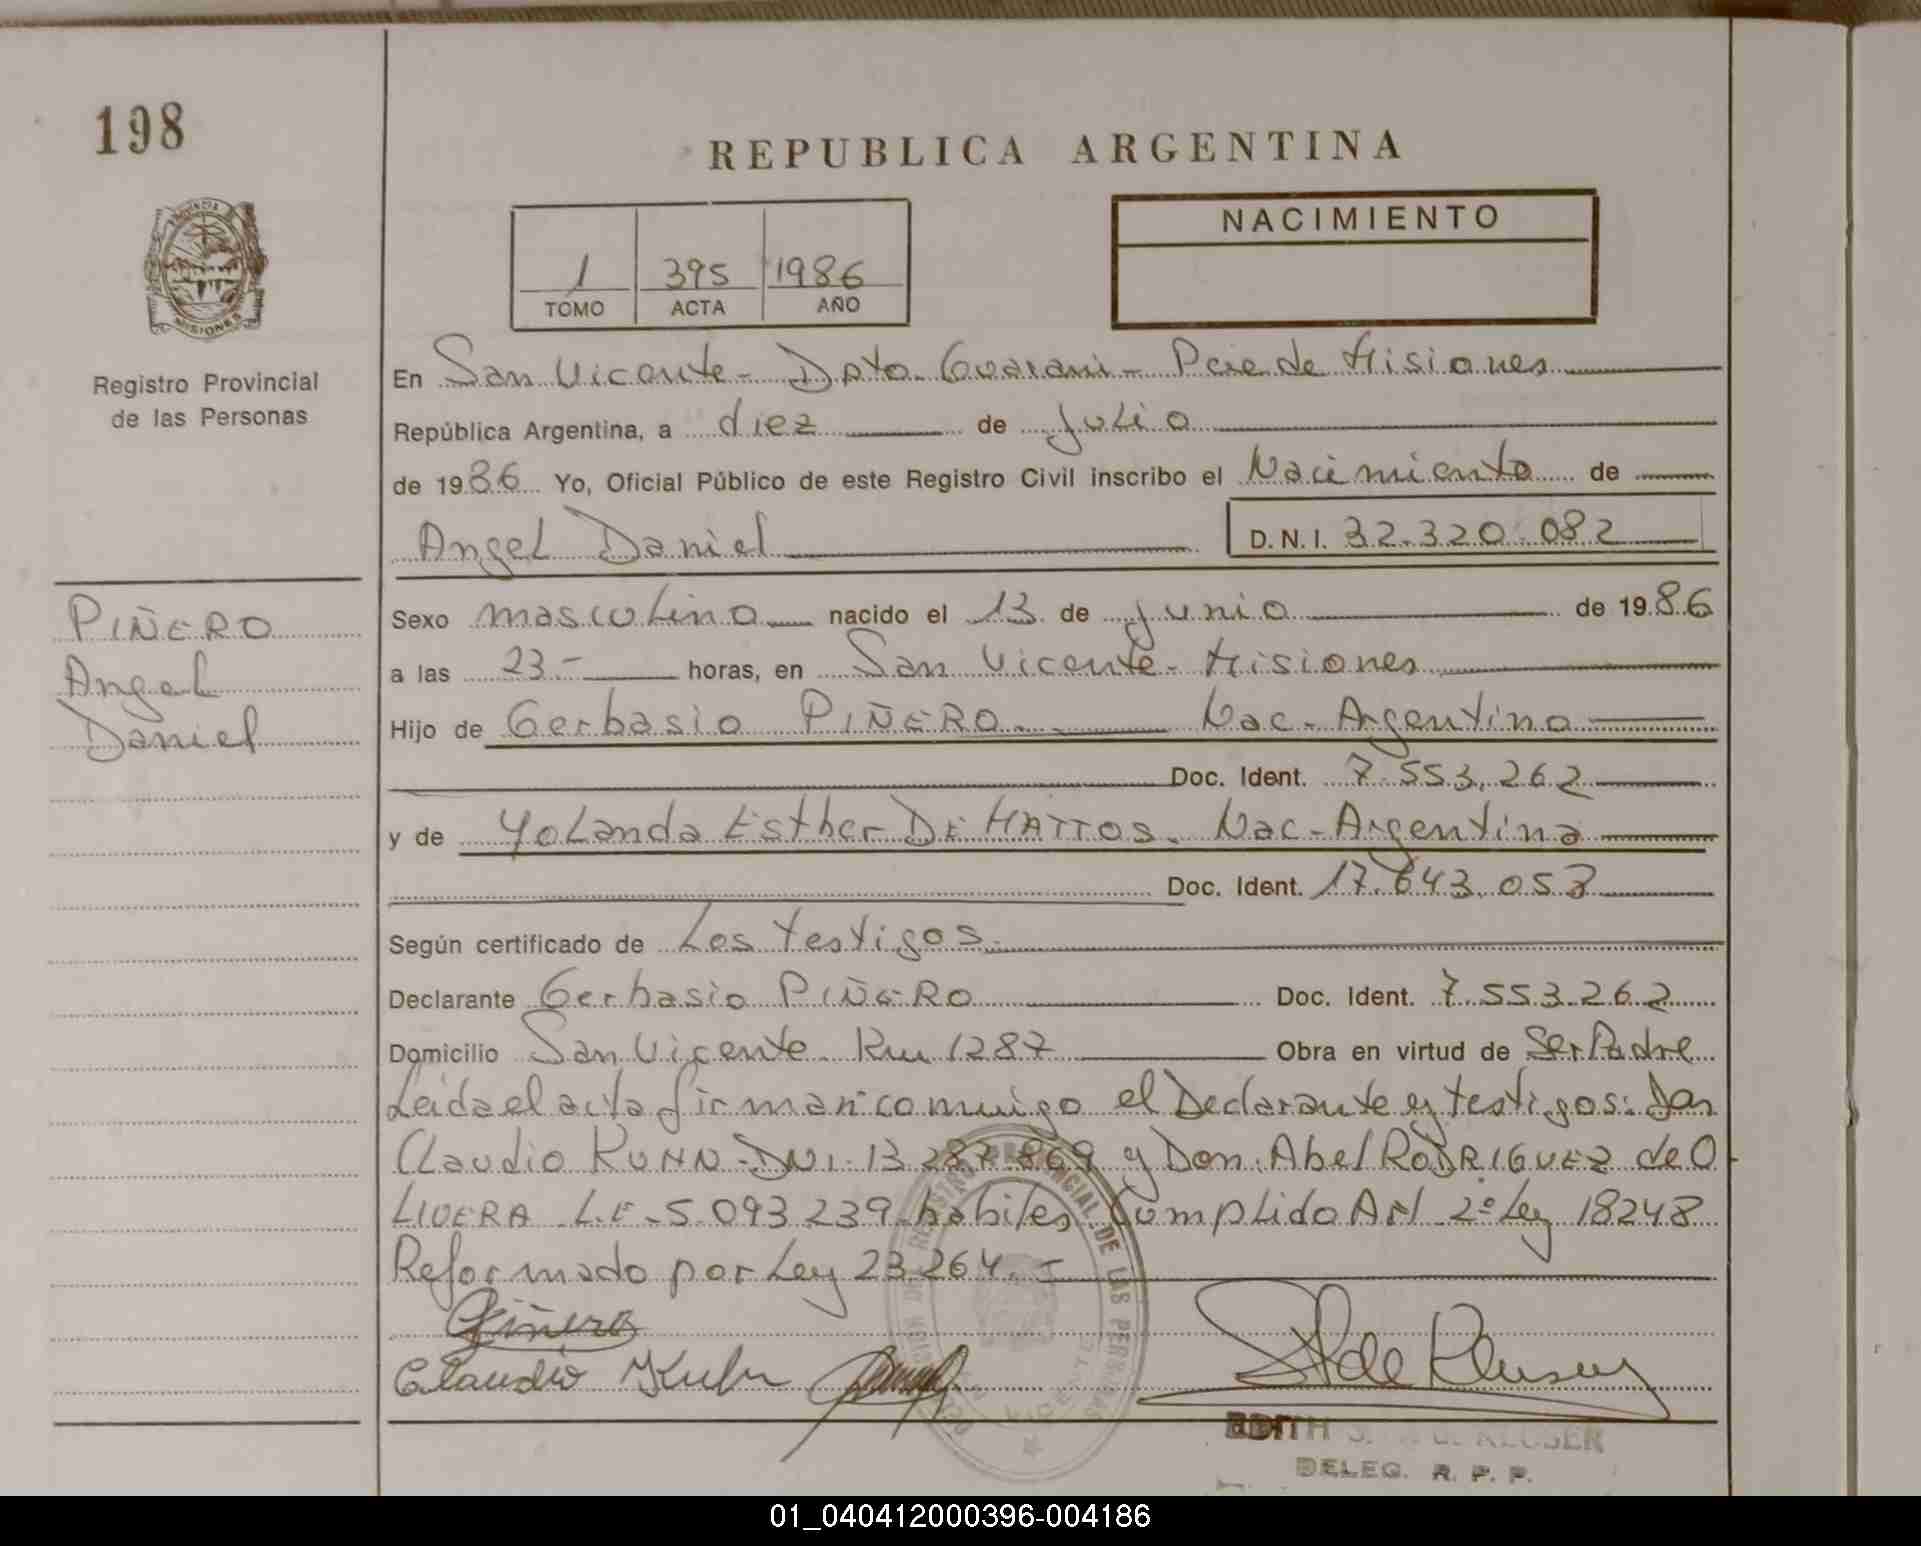 198
REPUBLICA ARGENTINA
PROVINCIA
MISIONES
Registro Provincial
de las Personas
1 395 1986
TOMO ACTA AÑO
NACIMIENTO
En San Vicente - Dpto. Guarani - Pcia de Misiones
República Argentina, a diez de julio
de 1986 Yo, Oficial Público de este Registro Civil inscribo el Nacimiento de
Angel Daniel D.N.I. 32.320.082
PIÑERO
Angel
Daniel
Sexo masculino nacido el 13 de junio de 1986
a las 23- horas, en San Vicente - Misiones
Hijo de Gerbasio PIÑERO. Nac - Argentino
Doc. Ident. 7.553.262
y de Yolanda Esther DE MATTOS. Nac - Argentina
Doc. Ident. 17.643.053
Según certificado de Los testigos.
Declarante Gerbasio PIÑERO Doc. Ident. 7.553.262
Domicilio San Vicente Km 1287 Obra en virtud de Ser Padre
Leida el acta firman comnigo el Declarante y testigos: Don
Claudio KUHN - DNI. 13.287.869 y Don Abel RODRIGUEZ de O
LIVERA L.E. 5.093.239 habiles. Cumplido Art 2º Ley 18248
Reformado por Ley 23.264. -
Piñero
Claudio Kuhn
REGISTRO PROVINCIAL DE LAS PERSONAS
VICENTE
EDITH S. KLUSER
DELEG. R. P. P.
01_040412000396-004186